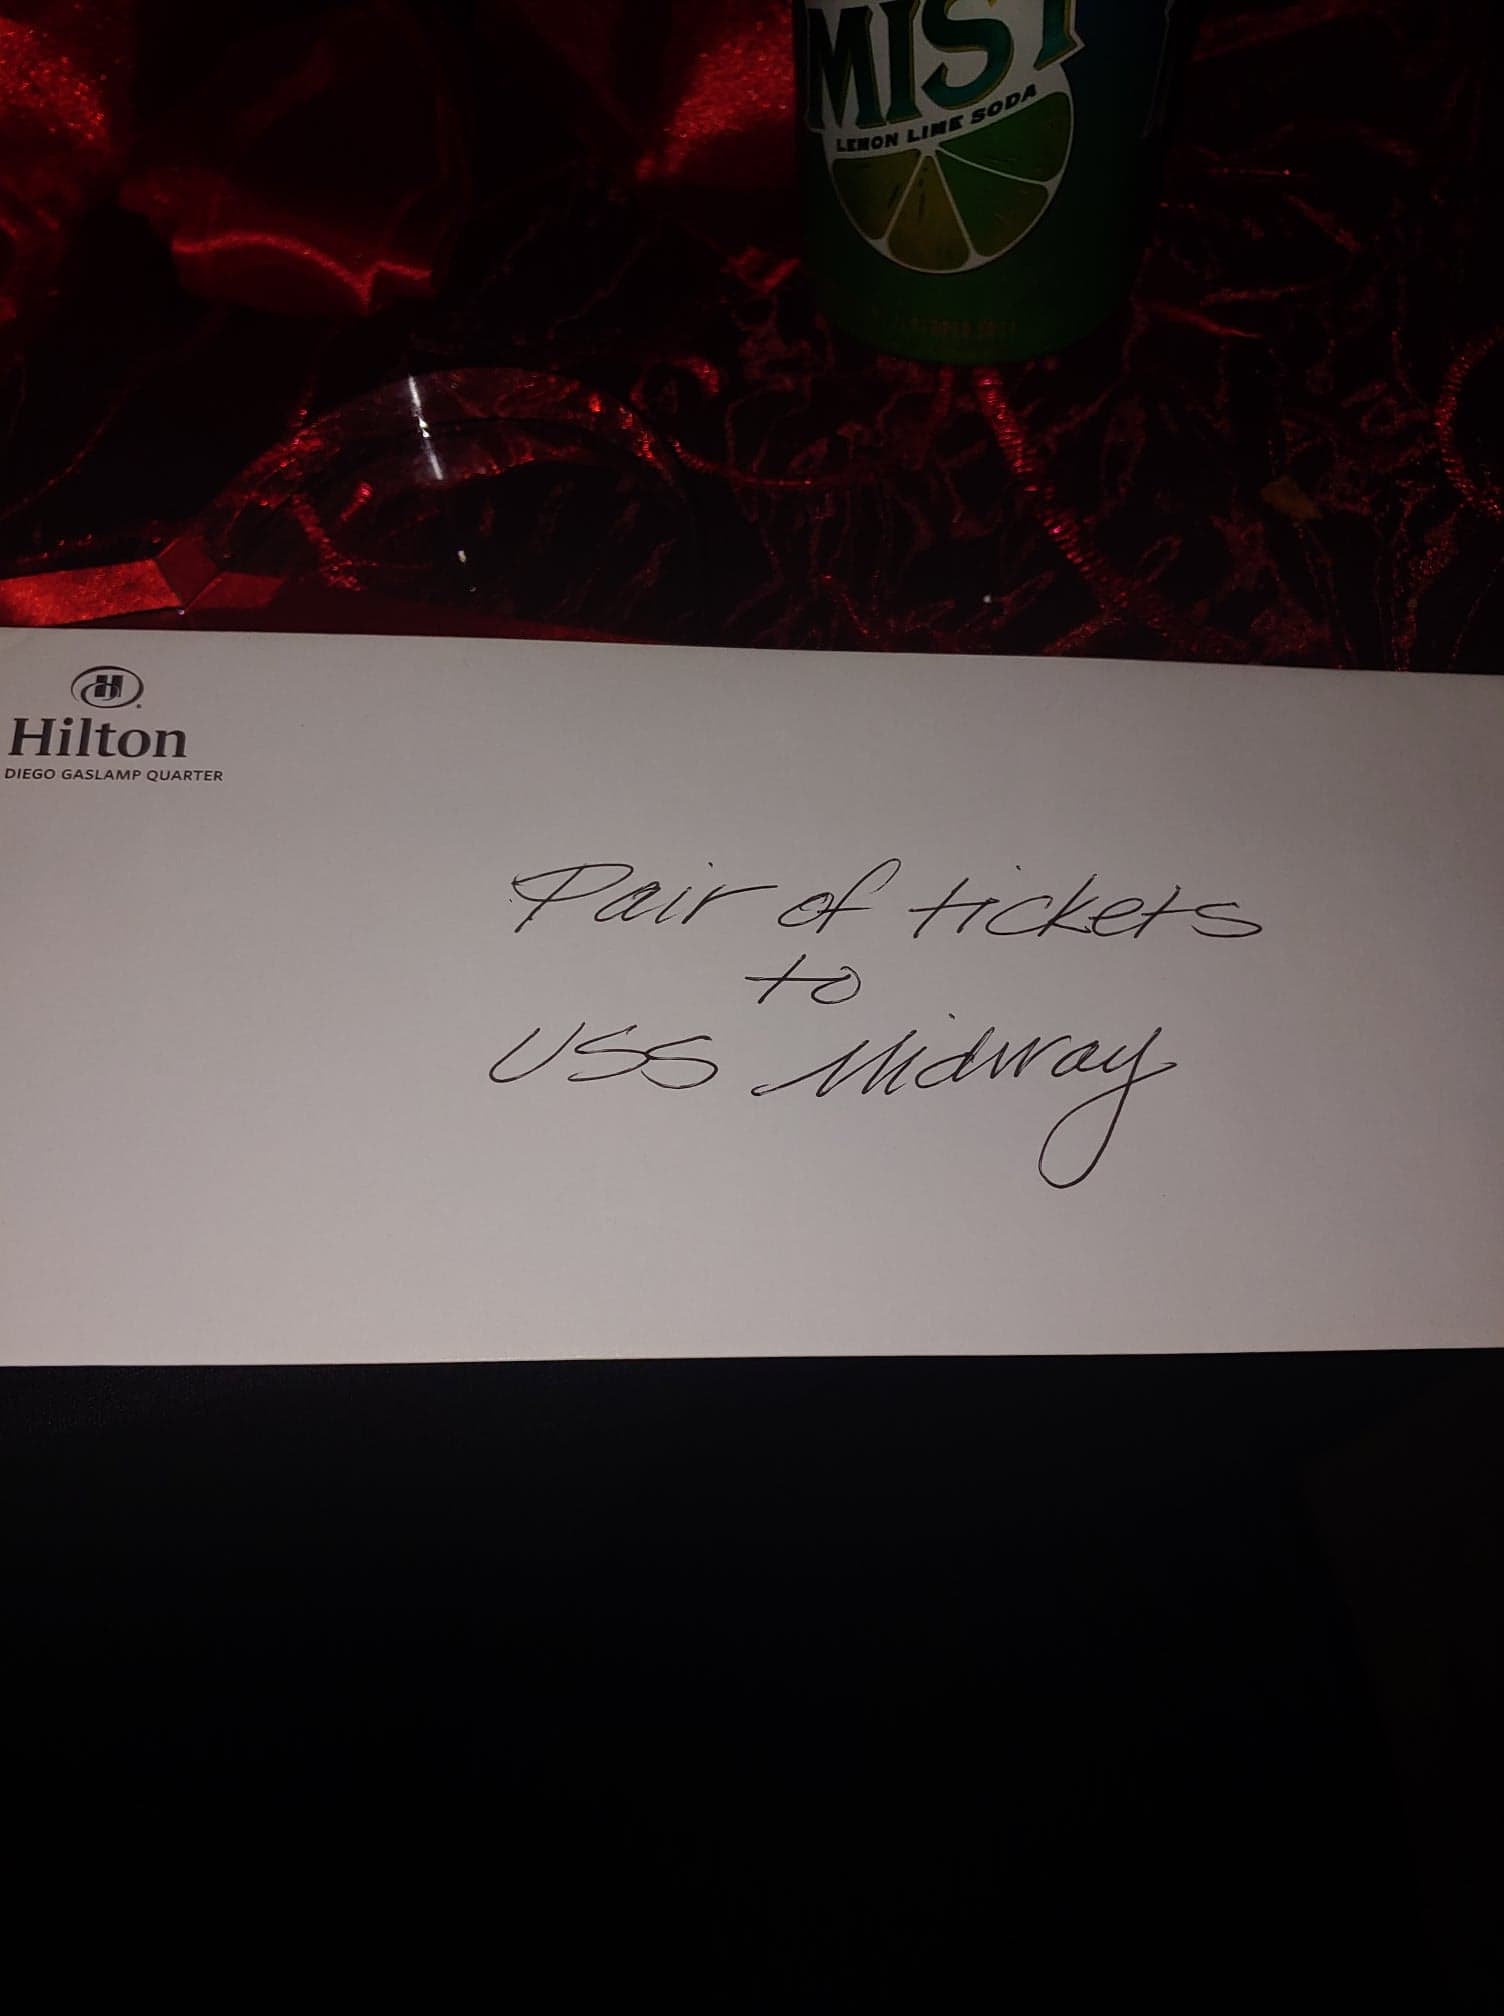 MIST
LEMON LIME SODA
H
Hilton
DIEGO GASLAMP QUARTER
Pair of tickets
to
USS Midway